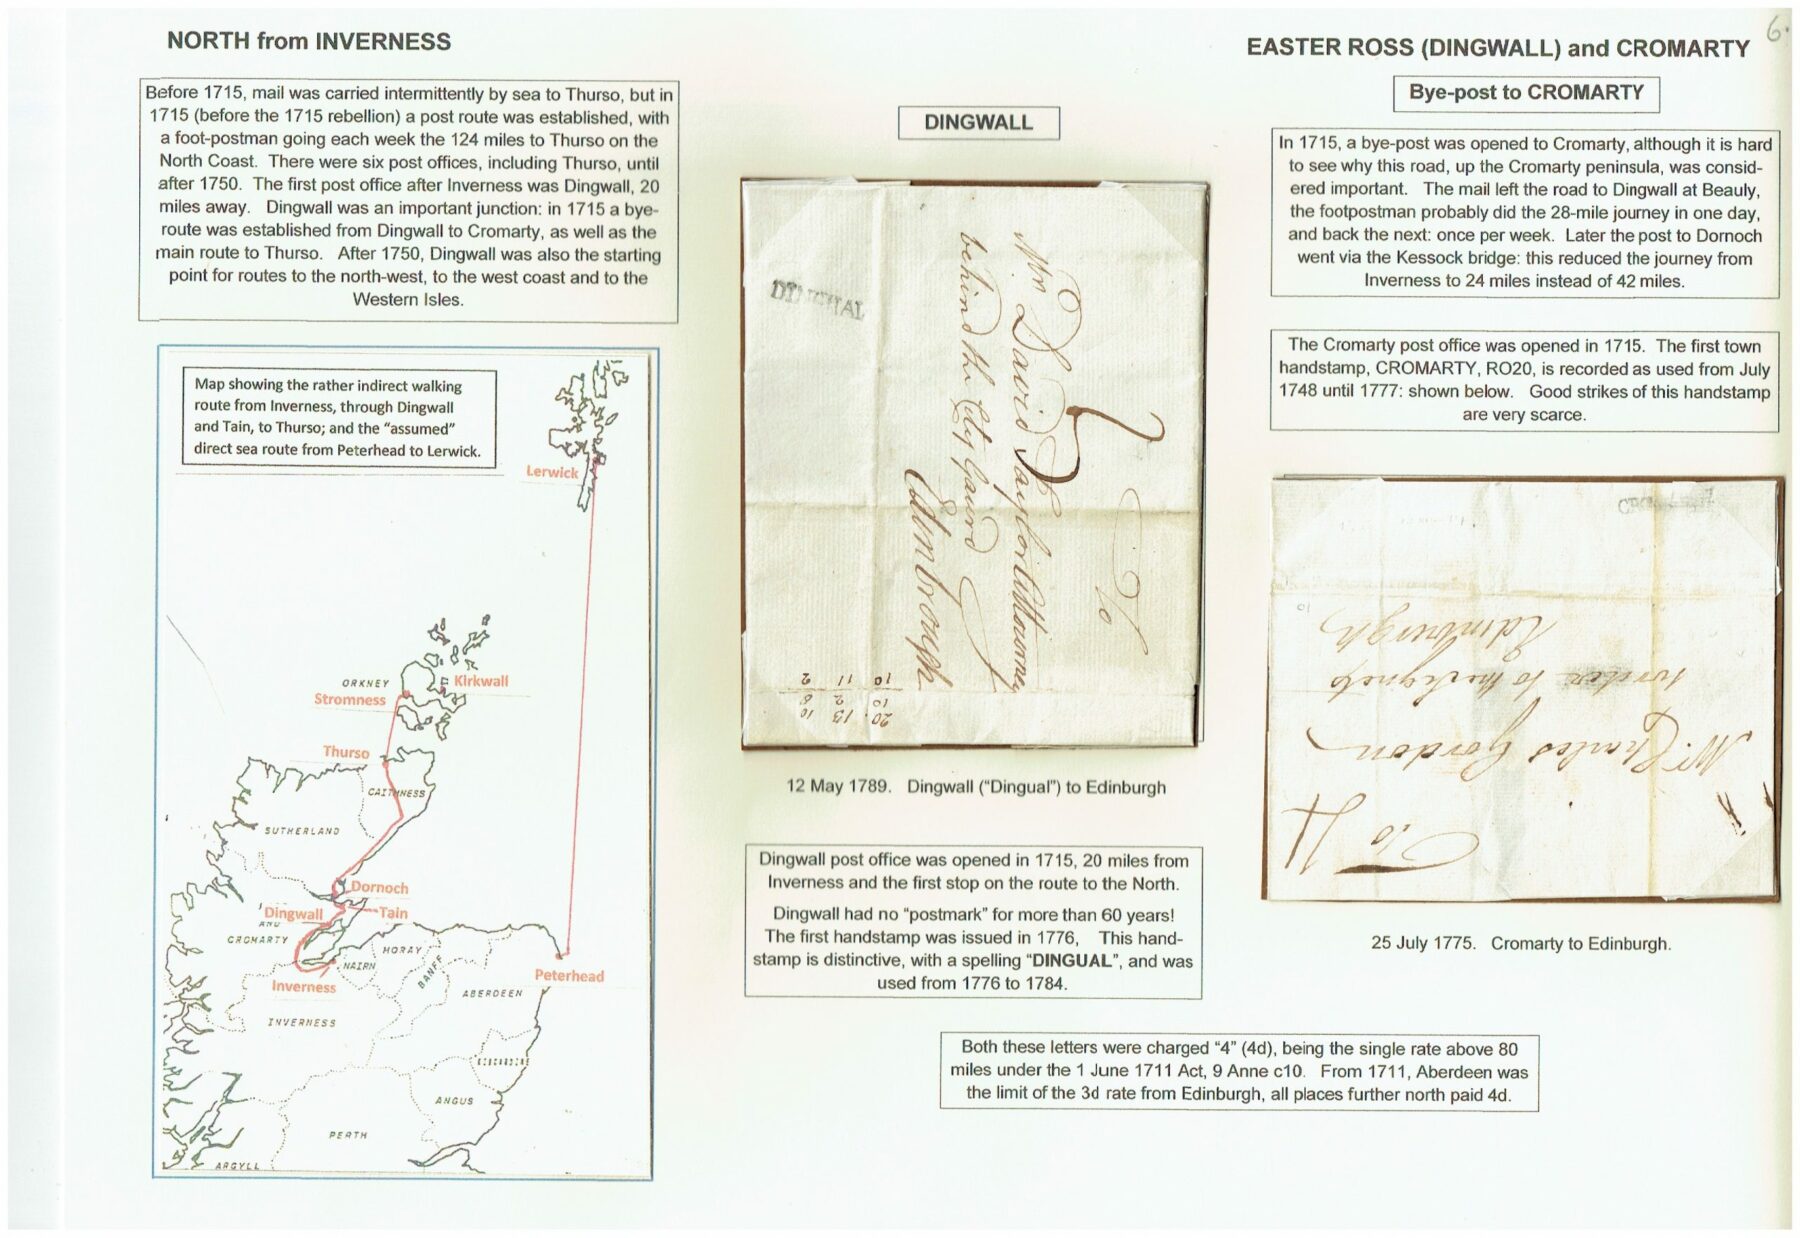 6.
NORTH from INVERNESS
EASTER ROSS (DINGWALL) and CROMARTY
Before 1715, mail was carried intermittently by sea to Thurso, but in
1715 (before the 1715 rebellion) a post route was established, with
a foot-postman going each week the 124 miles to Thurso on the
North Coast. There were six post offices, including Thurso, until
after 1750. The first post office after Inverness was Dingwall, 20
miles away. Dingwall was an important junction: in 1715 a bye-
route was established from Dingwall to Cromarty, as well as the
main route to Thurso. After 1750, Dingwall was also the starting
point for routes to the north-west, to the west coast and to the
Western Isles.
Map showing the rather indirect walking
route from Inverness, through Dingwall
and Tain, to Thurso; and the “assumed”
direct sea route from Peterhead to Lerwick.
Lerwick
ORKNEY
Kirkwall
Stromness
Thurso
CAITHNESS
SUTHERLAND
Dornoch
Dingwall
Tain
AND
CROMARTY
MORAY
NAIRN
BANFF
Peterhead
Inverness
ABERDEEN
INVERNESS
KINCARDINE
ANGUS
PERTH
ARGYLL
DINGWALL
DINGUAL
To
Mr David Taylor Attorney
behind the City Gaurd
Edinbrough
5
20. 13 10
10 2 8
10 11 2
12 May 1789. Dingwall (“Dingual”) to Edinburgh
Dingwall post office was opened in 1715, 20 miles from
Inverness and the first stop on the route to the North.
Dingwall had no “postmark” for more than 60 years!
The first handstamp was issued in 1776, This hand-
stamp is distinctive, with a spelling “DINGUAL”, and was
used from 1776 to 1784.
Bye-post to CROMARTY
In 1715, a bye-post was opened to Cromarty, although it is hard
to see why this road, up the Cromarty peninsula, was consid-
ered important. The mail left the road to Dingwall at Beauly,
the footpostman probably did the 28-mile journey in one day,
and back the next: once per week. Later the post to Dornoch
went via the Kessock bridge: this reduced the journey from
Inverness to 24 miles instead of 42 miles.
The Cromarty post office was opened in 1715. The first town
handstamp, CROMARTY, RO20, is recorded as used from July
1748 until 1777: shown below. Good strikes of this handstamp
are very scarce.
To
4
Mr. Charles Gordon
writer to the Signet
Edinburgh
25 July 1775. Cromarty to Edinburgh.
Both these letters were charged “4” (4d), being the single rate above 80
miles under the 1 June 1711 Act, 9 Anne c10. From 1711, Aberdeen was
the limit of the 3d rate from Edinburgh, all places further north paid 4d.